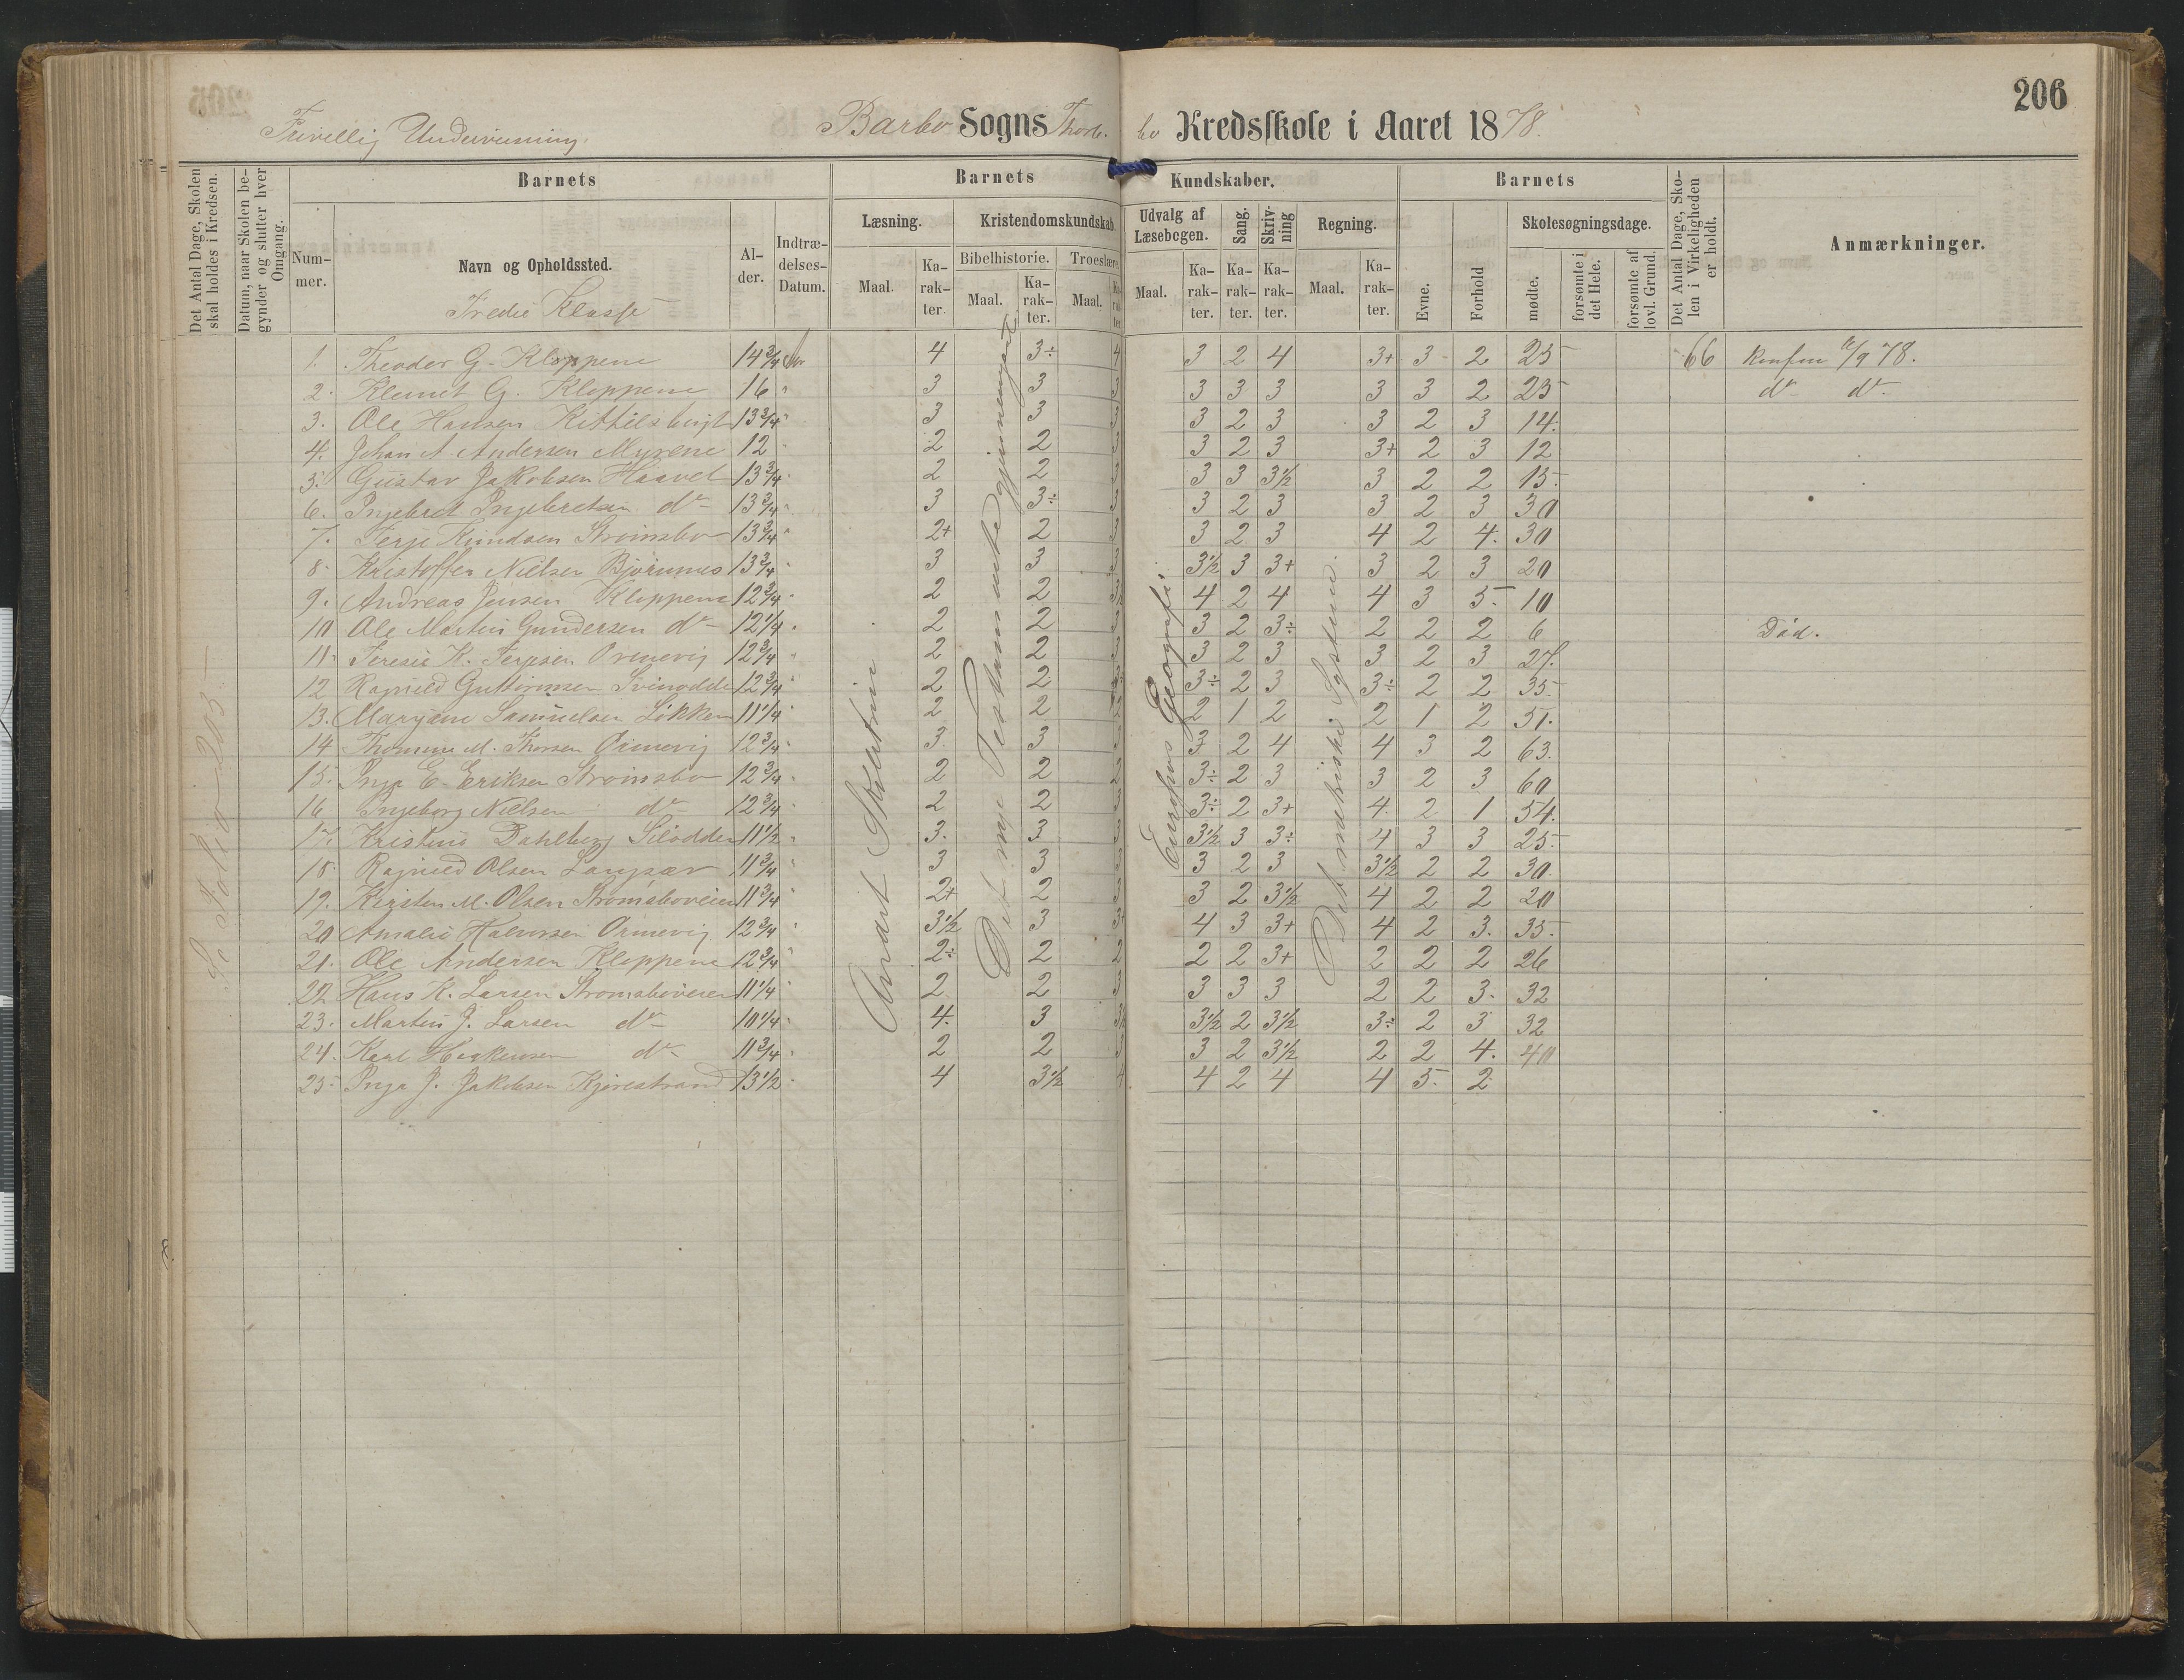 206
Frivillig Undervisning. Barbo Sogns Thorbo Kredsskole i Aaret 1878.
Det Antal Dage, Skolen skal holdes i Kredsen.
Datum, naar Skolen begynder og slutter hver Omgang.
Barnets
Nummer.
Navn og Opholdssted.
Tredie Klasse
Alder.
Indtrædelses-Datum.
Barnets Kundskaber.
Læsning.
Maal. Karakter.
Kristendomskundskab.
Bibelhistorie.
Maal. Karakter.
Troeslære.
Maal. Karakter.
Udvalg af Læsebogen.
Maal. Karakter.
Sang.
Karakter.
Skrivning
Karakter.
Regning.
Maal. Karakter.
Barnets
Evne.
Forhold
Skolesøgningsdage.
mødte.
forsømte i det Hele.
forsømte af lovl. Grund.
Det Antal Dage, Skolen i Virkeligheden er holdt.
Anmærkninger.
Se Folio 205
Det nye Testamente gjennemgaaet
Europas Geografi
Det metriske System.
1. Theodor G. Kloppene 14 3/4 4 3÷ 4 3 2 4 3+ 3 2 25 66 Konfm 78.
2. Klemet G. Kloppene 16 " 3 3 3 3 3 3 3 3 2 25 do do
3. Ole Hansen Kittelsbugt 13 3/4 " 3 3 3 3 2 3 3 2 3 14.
4. Johan A. Andersen Myrene 12 " 2 2 3 3 2 3 3+ 2 3 12
5. Gustav Jakobsen Haavet 13 3/4 " 2 2 3 3 3 3 1/2 3 2 2 15.
6. Ingebret Ingebretsen do 13 3/4 " 3 3÷ 3 3 2 3 3 2 3 30
7. Terje Knudsen Strømsbo 13 3/4 " 2+ 2 3 3 2 3 4 2 4. 30
8. Kristoffer Nielsen Bjørnnes 13 3/4 " 3 3 3 3 1/2 3 3+ 3 2 3 20
9. Andreas Jensen Kloppene 12 3/4 " 2 2 3 1/2 4 2 4 4 3 5. 10
10 Ole Martin Gundersen do 12 1/4 " 2 2 3 3 2 3÷ 2 2 2 6 Død.
11. Teresie K. Terjesen Ormevig 12 3/4 " 2 2 3 3 2 3 3 2 3 27.
12 Ragnild Guttormsen Svinodden 12 3/4 " 2 2 3÷ 2 3 3÷ 2 2 35.
13. Maryane Samuelsen Løkken 11 1/4 " 2 2 2 2 1 2 2 1 2 51.
14 Thomine M. Thorsen Ormevig 12 3/4 " 3 3 3 2 4 4 3 2 63.
15. Inga E. Eriksen Strømsbo 12 3/4 " 2 2 2 3÷ 2 3 3 2 3 60
16 Ingeborg Nielsen do 12 3/4 " 2 2 3 3÷ 2 3+ 4. 2 1 54.
17. Kristine Dahlberg Silodden 11 1/2 " 3. 3 3 3 1/2 3 3÷ 4 3 3 25.
18. Ragnild Olsen Langsæv 11 3/4 " 3 3 3 3 2 3 3 1/2 2 2 30.
19. Kirsten M. Olsen Strømsboveien 11 3/4 " 2+ 2 3 3 2 3 1/2 4 2 2 20
20 Amalie Halvorsen Ormevig 12 3/4 " 3 1/2 3 3+ 4 3 3+ 4 2 3. 35.
21. Ole Andersen Kloppene 12 3/4 " 2÷ 2 2 2 2 3+ 2 2 2 26
22 Hans K. Larsen Strømsboveien 11 1/4 " 2 2 3 3 3 3 2 2 3. 32
23. Martin J. Larsen do 10 1/4 " 4. 3 3 1/2 3 1/2 2 3 1/2 3÷ 2 3 32
24. Karl Haakensen do 11 3/4 " 2 2 3 3 2 3 1/2 2 2 4. 40
25. Inga J. Jakobsen Kjørestrand 13 1/2 " 4 3 1/2 4 4 2 4 4 5. 2